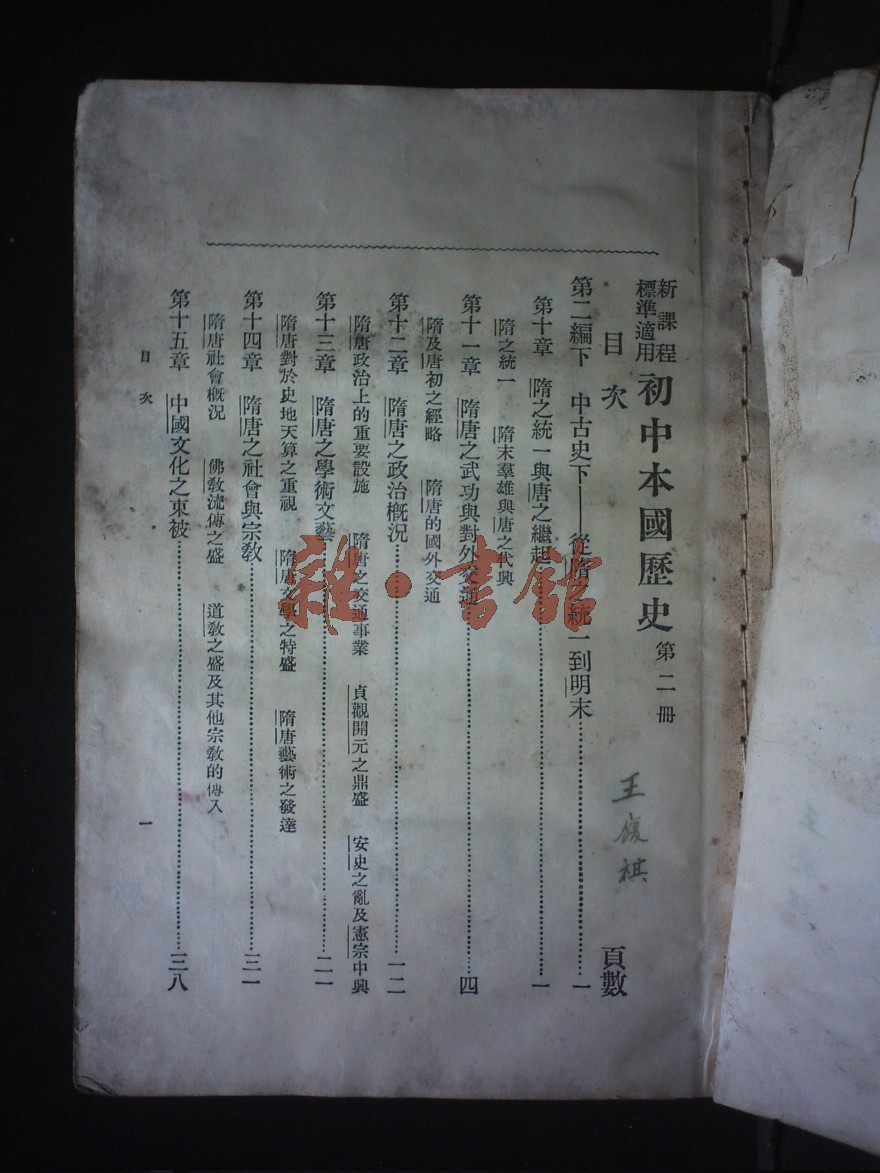 新課程標準適用 初中本國歷史 第二冊
目次 頁數
第二編下 中古史下——從隋之統一到明末……一
第十章 隋之統一與唐之繼起……一
隋之統一 隋末羣雄與唐之代興
第十一章 隋唐之武功與對外交通……四
隋及唐初之經略 隋唐的國外交通
第十二章 隋唐之政治概況……一二
隋唐政治上的重要設施 隋唐之交通事業 貞觀開元之鼎盛 安史之亂及憲宗中興
第十三章 隋唐之學術文藝……二一
隋唐對於史地天算之重視 隋唐文學之特盛 隋唐藝術之發達
第十四章 隋唐之社會與宗教……三一
隋唐社會概況 佛教流傳之盛 道教之盛及其他宗教的傳入
第十五章 中國文化之東被……三八
目次 一
雜·書館